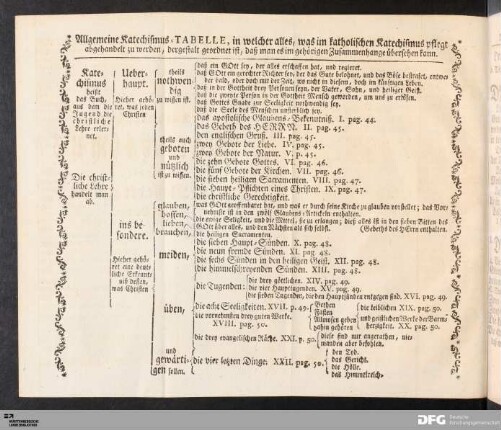 Allgemeine Katechismus-TABELLE, in welcher alles, was im katholischen Katechismus pflegt
abgehandelt zu werden, dergestalt geordnet ist, daß man es im gehörigen Zusammenhange übersehen kann.
Kate-
chismus
heißt
das Buch,
aus dem die
Jugend die
christliche
Lehre erler-
net.
Die christ-
liche Lehre
handelt nun
ab.
Ueber-
haupt.
Hieher gehö-
ret, was jeden
Christen
ins be-
sondere.
Hieher gehö-
ret eine deut-
liche Erkennt-
niß dessen,
was Christen
theils
nothwen-
dig
zu wissen ist.
theils auch
geboten
und
nützlich
ist zu wissen.
glauben,
hoffen,
lieben,
brauchen,
meiden,
üben,
und
gewärti-
gen sollen.
daß ein GOtt sey, der alles erschaffen hat, und regieret.
daß GOtt ein gerechter Richter sey, der das Gute belohnet, und das Böse bestrafet, entwe-
der bald, oder doch mit der Zeit, wo nicht in diesem, doch im künftigen Leben.
daß in der Gottheit drey Personen seyn, der Vater, Sohn, und heiliger Geist.
daß die zweyte Person in der Gottheit Mensch geworden, um uns zu erlösen.
daß Gottes Gnade zur Seeligkeit nothwendig sey.
daß die Seele des Menschen unsterblich sey.
das apostolische Glaubens-Bekenntniß. I. pag. 44.
das Gebeth des HERRN. II. pag. 45.
den englischen Gruß. III. pag. 45.
zwey Gebote der Liebe. IV. pag. 45.
zwey Gebote der Natur. V. p. 45.
die zehn Gebote Gottes. VI. pag. 46.
die fünf Gebote der Kirchen. VII. pag. 46.
die sieben heiligen Sacramenten. VIII. pag. 47.
die Haupt-Pflichten eines Christen. IX. pag. 47.
die christliche Gerechtigkeit.
was GOtt geoffenbaret hat, und was er durch seine Kirche zu glauben vorstellet; das Vor-
nehmste ist in den zwölf Glaubens-Artickeln enthalten.
die ewige Seligkeit, und die Mittel, sie zu erlangen; dieß alles ist in den sieben Bitten des
GOtt über alles, und den Nächsten als sich selbst. (Gebeths des HErrn enthalten.
die heiligen Sacramenten.
die sieben Haupt-Sünden. X. pag. 48.
die neun fremde Sünden. XI. pag. 48.
die sechs Sünden in den heiligen Geist. XII. pag. 48.
die himmelschreyenden Sünden. XIII. pag. 48.
die Tugenden:
die drey göttlichen. XIV. pag. 49.
die vier Haupttugenden. XV. pag. 49.
die sieben Tugenden, die den Hauptsünden entgegen sind. XVI. pag. 49.
die acht Seeligkeiten. XVII. p. 49.
die vornehmsten drey guten Werke.
XVIII. pag. 50.
Bethen
Fasten
Allmosen geben
dahin gehören
die leiblichen XIX. pag. 50.
und geistlichen Werke der Barm-
herzigkeit. XX. pag. 50.
die drey evangelischen Räthe. XXI. p. 50.
diese sind nur angerathen, nie-
manden aber befohlen.
die vier letzten Dinge. XXII. pag. 50.
den Tod.
das Gericht.
die Hölle.
das Himmelreich.
DFG